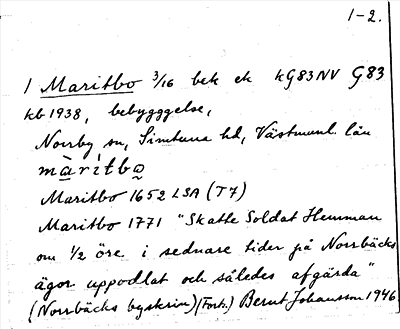 1-2.
1 Maritbo 3/16 bek ek kG83NV G83
kb 1938, bebyggelse,
Norrby sn, Simtuna hd, Västmanl. län
màrítbo
Maritbo 1652 LSA (T7)
Maritbo 1771 "Skatte Soldat Hemman
om 1/2 öre i sednare tider på Norrbäcks
ägor uppodlat och således afgärda"
(Norrbäcks byskrin) (Forts.) Bernt Johansson 1946